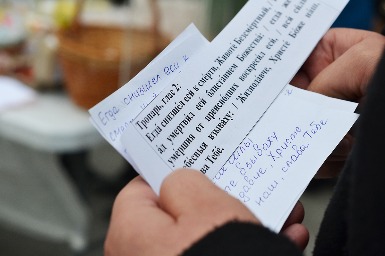 Егда снизшел еси к
Тропарь, глас 2.
Егда снизшел еси к смерти, Животе Безсмертный, /
ад умертвил еси блистанием Божества; / егда же
умершия от преисподних воскресил еси, / вся силы
Небесныя взываху: / Жизнодавче, Христе Боже наш,
слава Тебе.
взываху
Христе
наш, слава Тебе